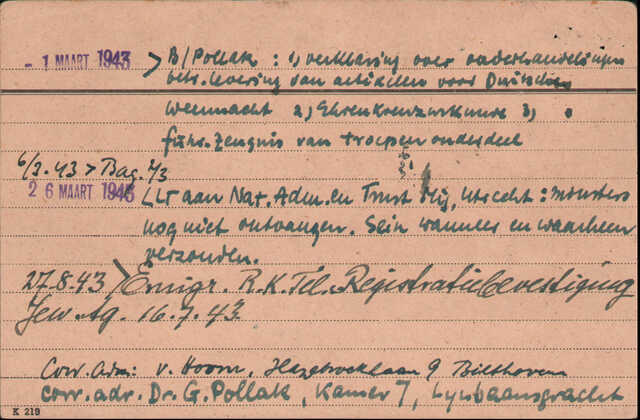 - 1 MAART 1943 > B/Pollak : 1) verklaring over onderhandelingen
betr. levering van artikelen voor Duitsche
Weermacht 2) Ehrenkreuzurkunde 3) .
führ. Zeugnis van troepenonderdeel
6/3.43 > Bag. 4/3
26 MAART 1943 LLT aan Nat. Adm. en Trust Mij, Utrecht : monsters
nog niet ontvangen. Sein wanneer en waarheen
verzonden.
27.8.43 > Emigr. R.K. Tel. Registratiebevestiging
Jew. Ag. 16.7.43.
Corr. Adm: v. Hoorn, Hazebroeklaan 9 Bilthoven
corr. adr. Dr. G. Pollak, Kamer 7, Lijnbaansgracht
K 219